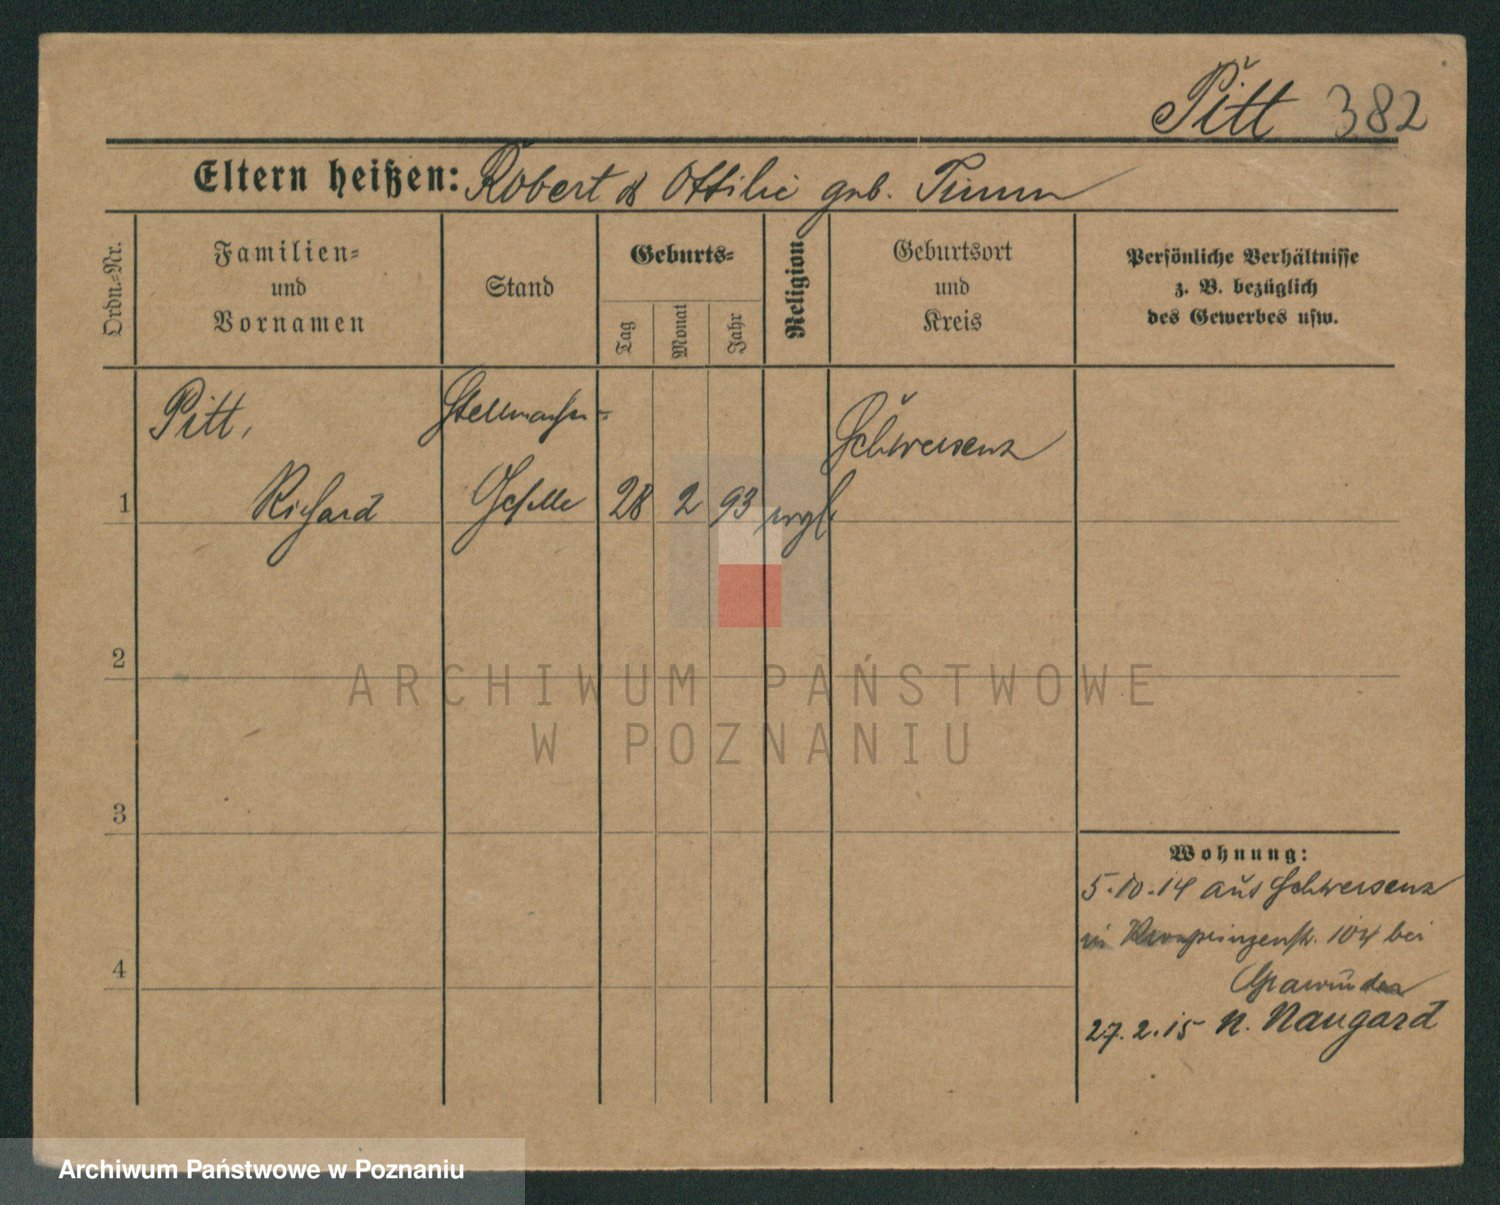 Pitt 382
Eltern heißen: Robert & Ottilie geb. Timm
Ordn.-Nr.
Familien- und Vornamen
Stand
Geburts-
Tag
Monat
Jahr
Religion
Geburtsort und Kreis
Persönliche Verhältnisse
z. B. bezüglich
des Gewerbes usw.
Pitt, Stellmacher- Schwersenz
1 Richard Geselle 28 2 93 evgl
2
ARCHIWUM PAŃSTWOWE
W POZNANIU
3
Wohnung:
5.10.14 aus Schwersenz
in Kronprinzenstr. 104 bei
4
27.2.15 n. Naugard
Archiwum Państwowe w Poznaniu